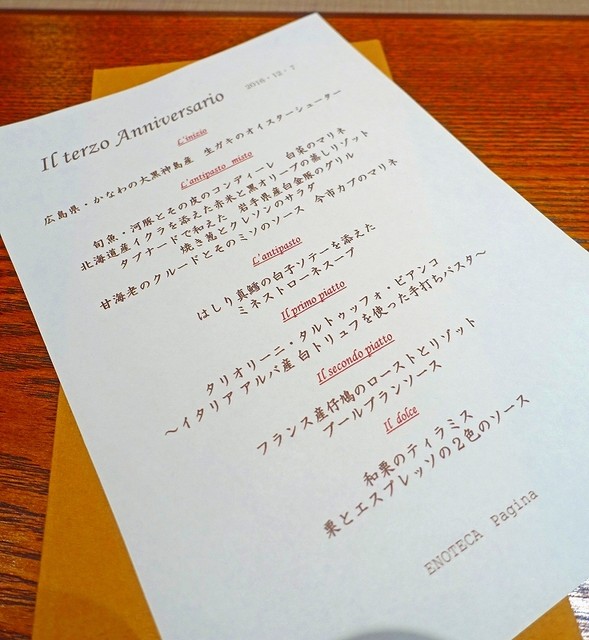 Il terzo Anniversario
2018・12・1
L'inizio
広島県・かなわの大黒神島産 生ガキのオイスターシューター
L'antipasto misto
旬魚・河豚とその皮のコンディーレ 白菜のマリネ
北海道産イクラを添えた赤米と黒オリーブの蒸しリゾット
タプナードで和えた 岩手県産白金豚のグリル
焼き葱とクレソンのサラダ 今市カブのマリネ
甘海老のクルードとそのミソのソース
L'antipasto
はしり真鱈の白子ソテーを添えた
ミネストローネスープ
Il primo piatto
タリオリーニ・タルトゥッフォ・ビアンコ
～イタリア アルバ産 白トリュフを使った手打ちパスタ～
Il secondo piatto
フランス産仔鳩のローストとリゾット
ブールブランソース
Il dolce
和栗のティラミス
栗とエスプレッソの2色のソース
ENOTECA Pagina